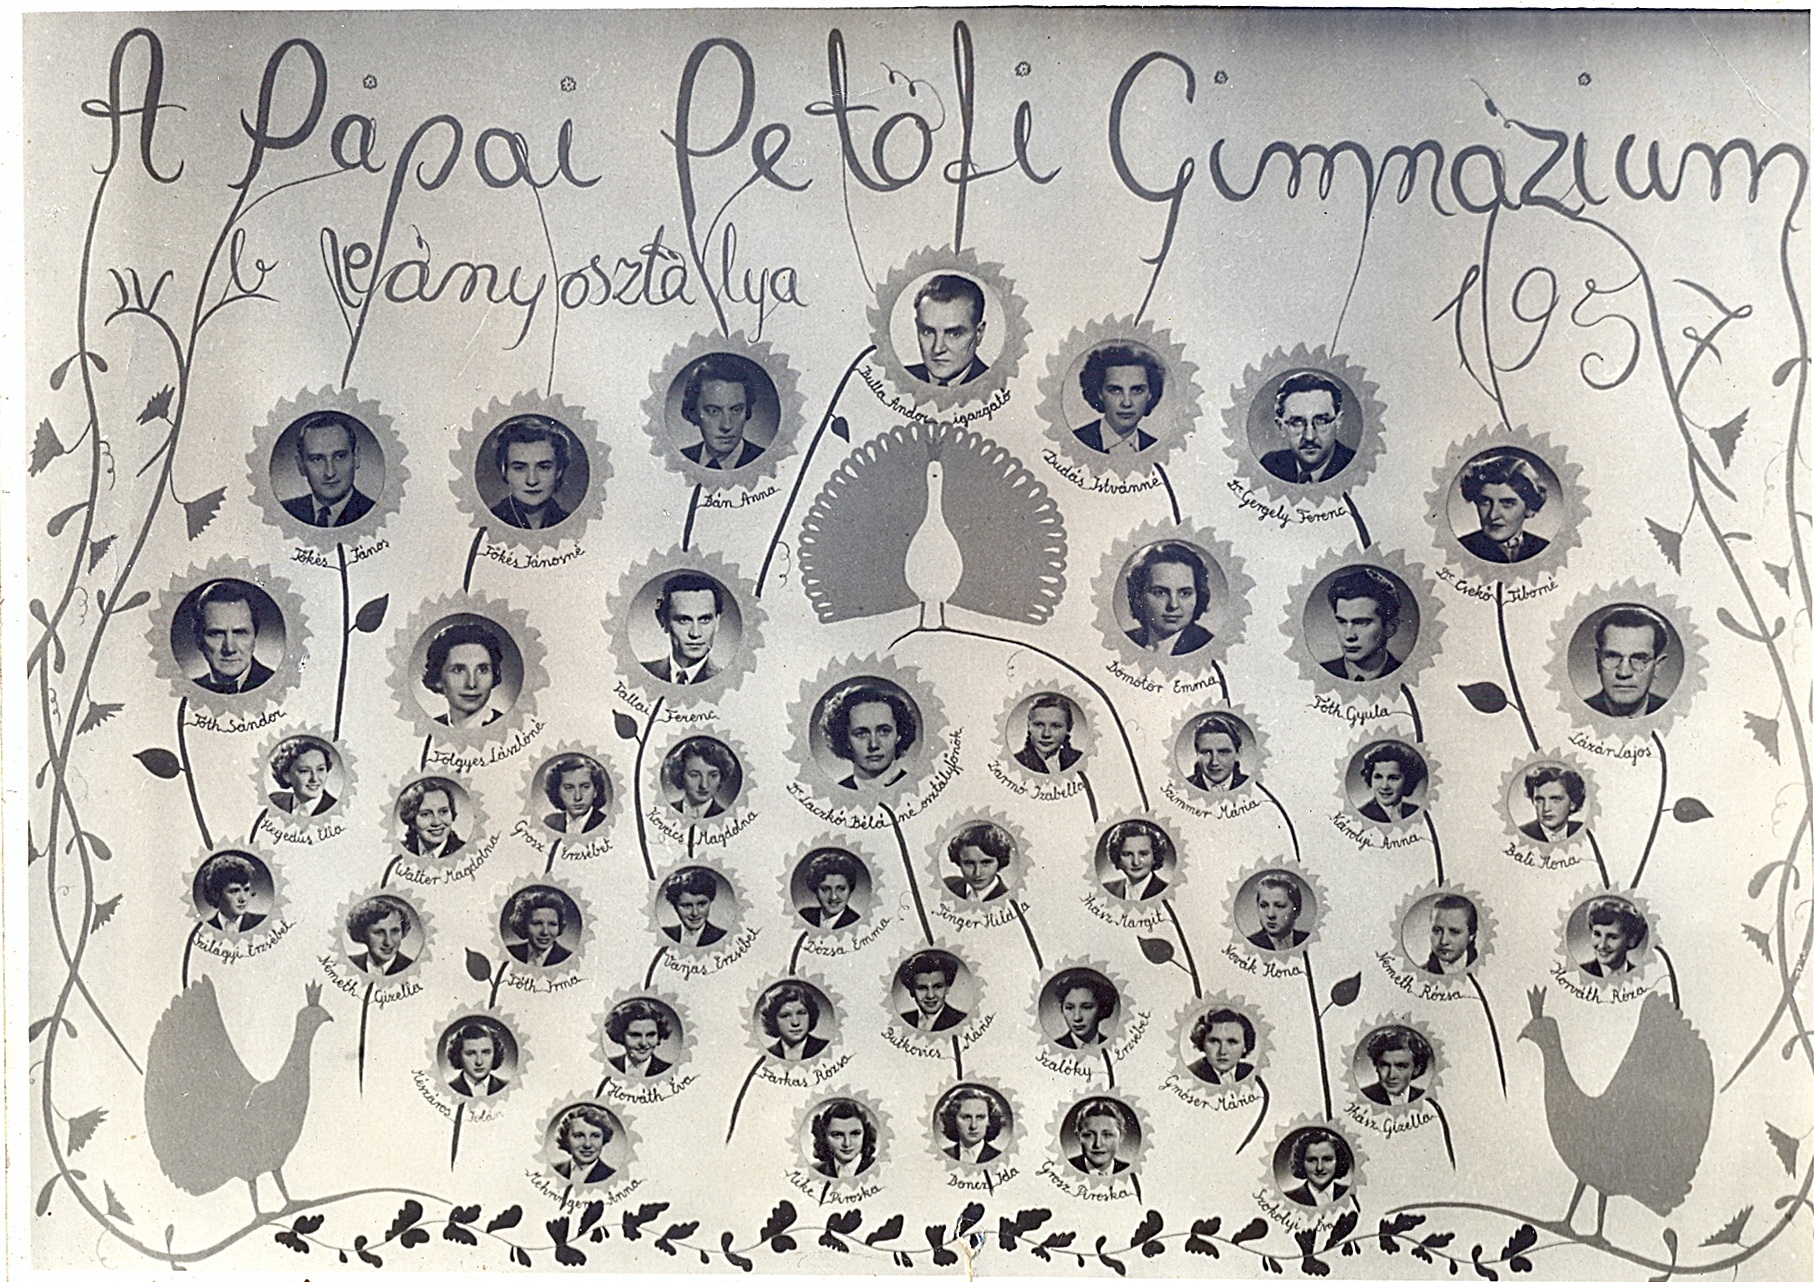 A Pápai Petőfi Gimnázium
IV b leányosztálya 1957
Bulla Andor igazgató
Bán Anna
Dudás Istvánné
Dr. Gergely Ferenc
Fökés János
Fökés Jánosné
Dr. Csekő Tiborné
Tóth Sándor
Fallai Ferenc
Dömötör Emma
Tóth Gyula
Fölgyes Lászlóné
Lázár Lajos
Dr. Laczkó Béláné osztályfőnök
Hegedüs Ella
Walter Magdolna
Grosz Erzsébet
Kovács Magdolna
Zarmó Izabella
Szimmer Mária
Károlyi Anna
Bali Ilona
Szilágyi Erzsébet
Németh Gizella
Tóth Irma
Varjas Erzsébet
Dózsa Emma
Finger Hilda
Ihász Margit
Novák Ilona
Németh Rózsa
Horváth Róza
Mészáros Jolán
Horváth Éva
Farkas Rózsa
Butkovics Mária
Szalóky Erzsébet
Gmöser Mária
Ihász Gizella
Mehringer Anna
Mike Piroska
Doncz Ida
Grosz Piroska
Szokolyi Éva